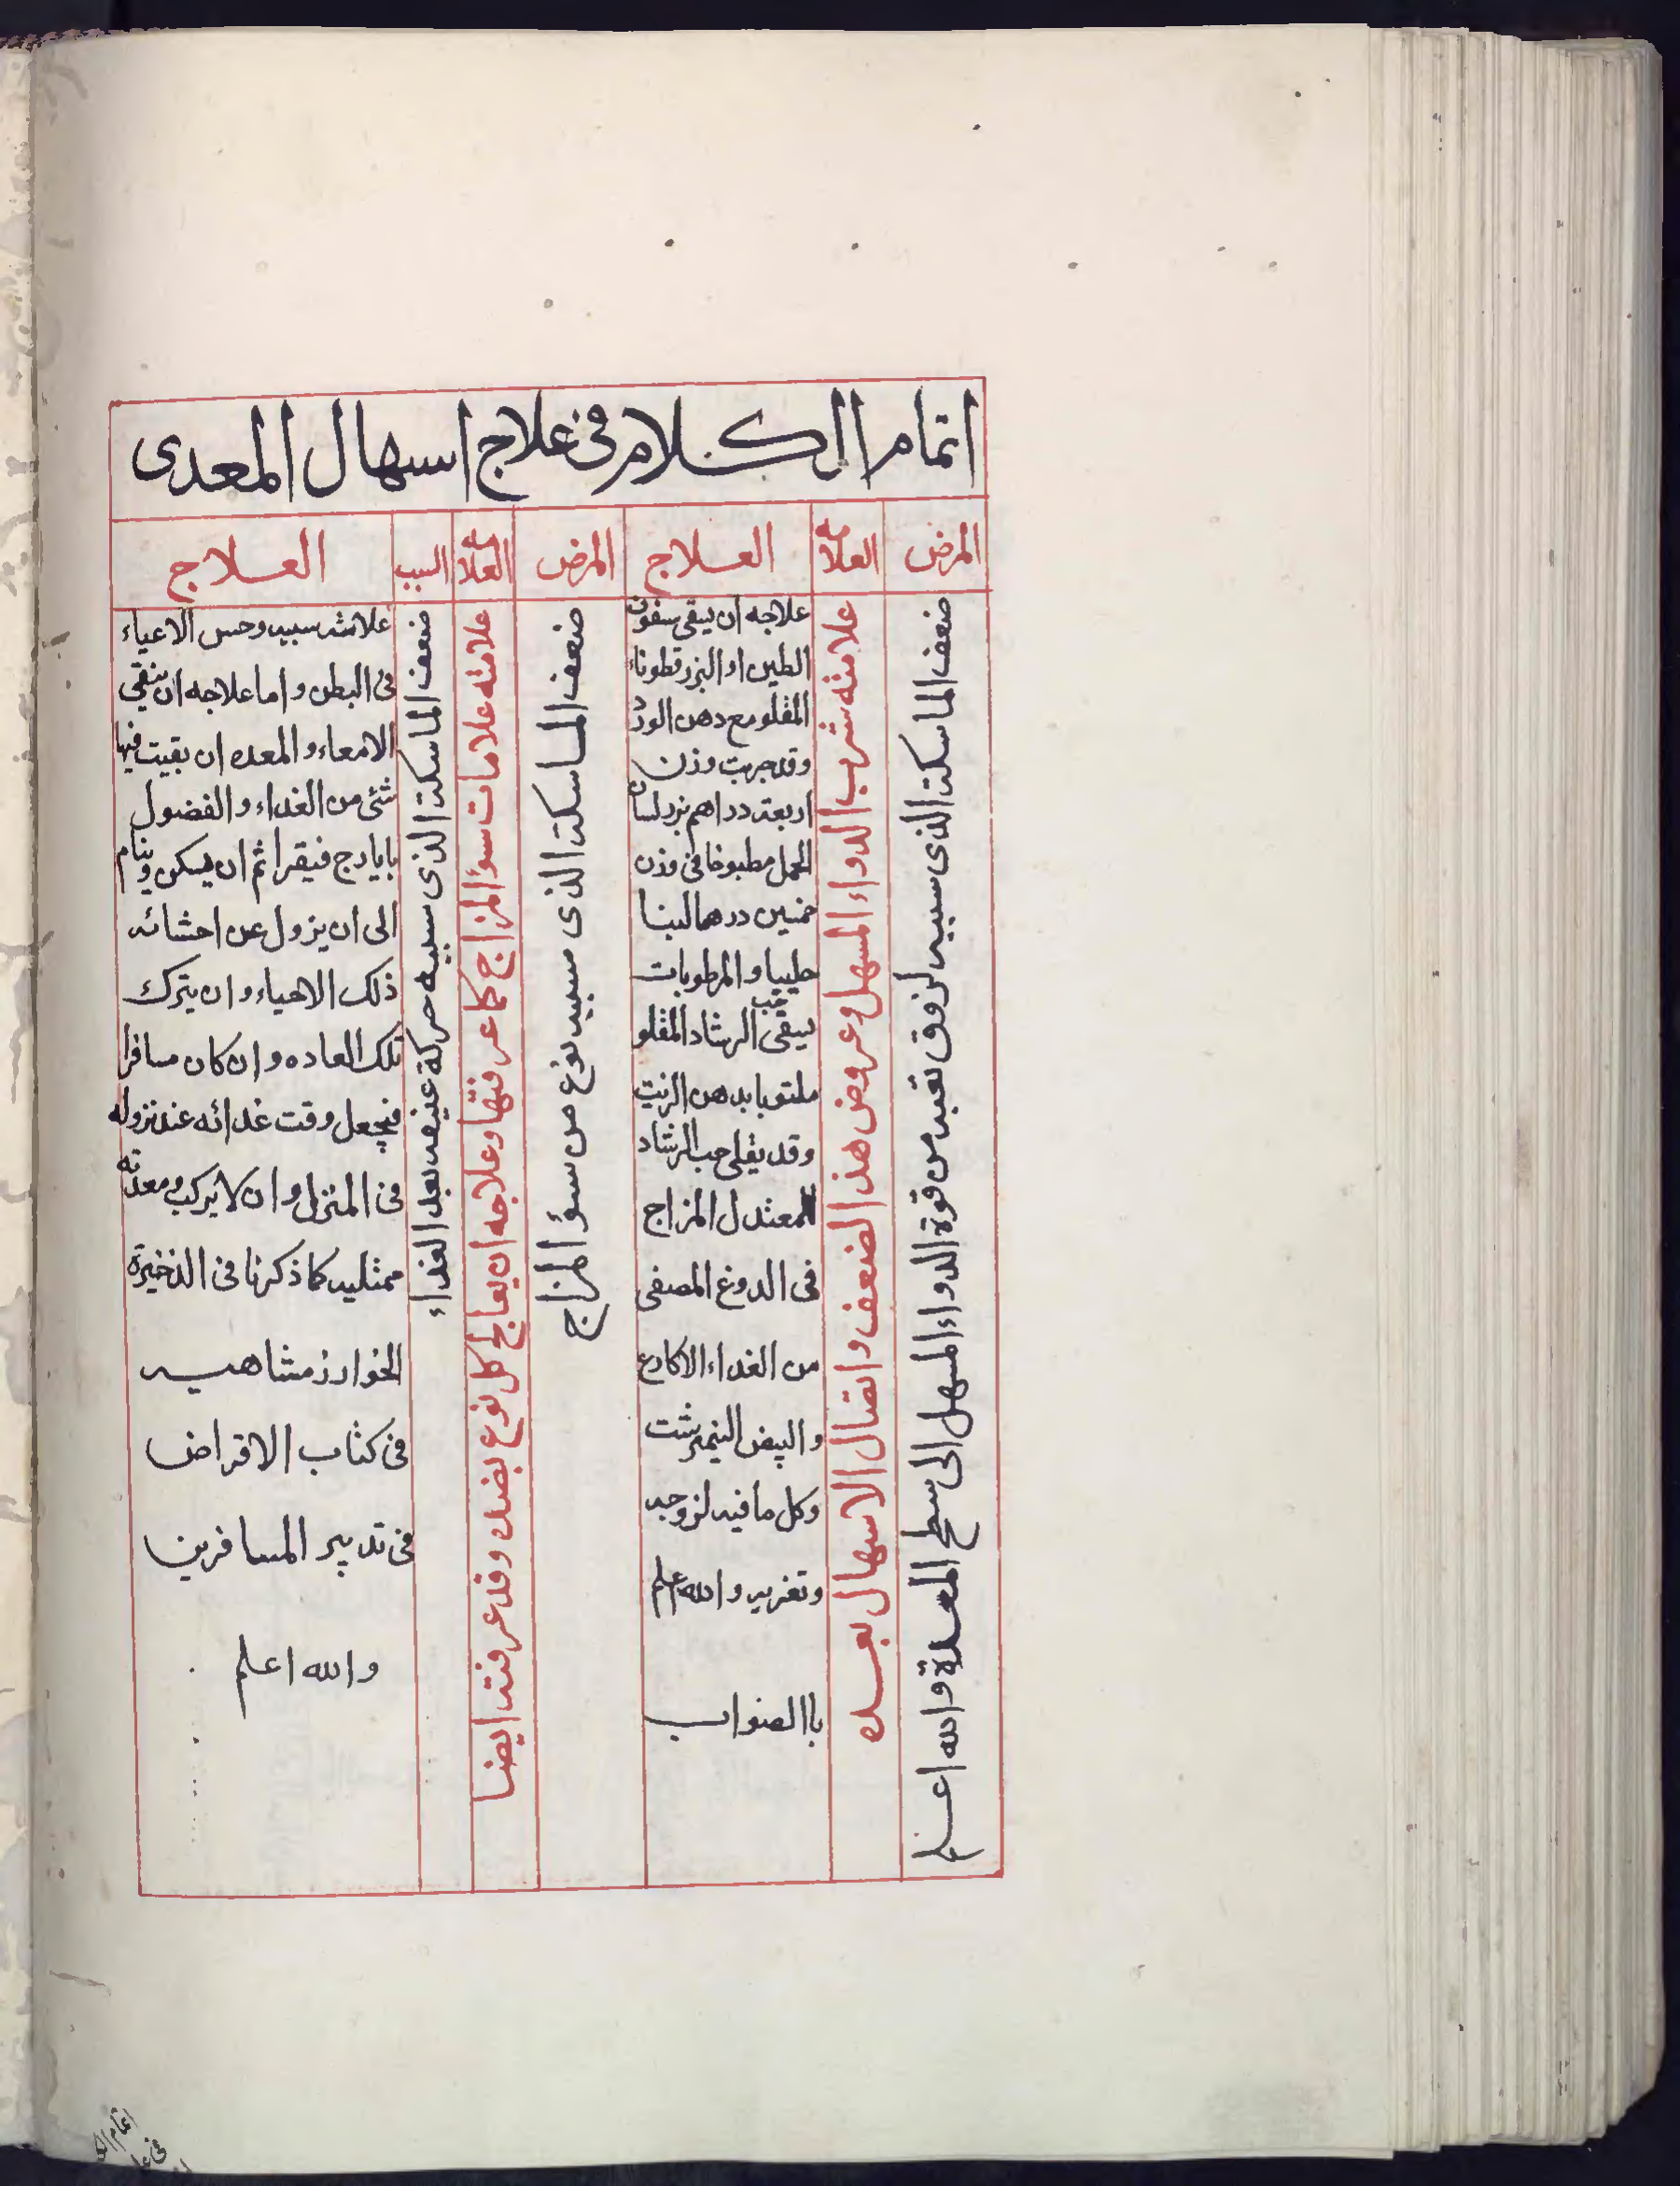 اتمام الكلام فى علاج اسهال المعدى
المرض
العلامه
العلاج
المرض
العلامه
السبب
العلاج
ضعف الماسكة الذى سببه لزوق تعبه من قوة الدواء المسهل الى سطح المعدة والله اعلم
علامته شرب الدواء المسهل وعروض هذا الضعف واتصال الاسهال بعده
علاجه ان يسقى سفوف
الطين او البزر قطوناء
المقلو مع دهن الورد
وقد جربت وزن
اربعة دراهم بزر لسان
الحمل مطبوخا فى وزن
خمسين درهما لبنا
حليبا والمرطوبات
يسقى حب الرشاد المقلو
ملتوبا بدهن الزيت
وقد يقلى حب الرشاد
لمعتدل المزاج
فى الدوغ المصفى
من الغداء الاكارع
والبيض النيمرشت
وكل ما فيه لزوجه
وتغريه والله اعلم
باالصواب
ضعف الماسكة الذى سببه نوع من سوء المزاج
علامته علامات سوء المزاج كما عرفتها وعلاجه ان يعالج كل نوع بضده وقد عرفته ايضا
ضعف الماسكة الذى سببه حركة عنيفه بعد الغداء
علامته سببه وحس الاعياء
فى البطن واما علاجه ان ينقي
الامعاء والمعده ان بقيت فيها
شئى من الغداء والفضول
بايارج فيقرا ثم ان يسكن وينام
الى ان يزول عن احشائه
ذلك الاعياء وان يترك
تلك العاده وان كان مسافرا
فيجعل وقت غدائه عند نزوله
فى المنزل وان لا يركب ومعدته
ممتليه كما ذكرنا فى الذخيرة
الخوارزمشاهيه
فى كتاب الاقراض
فى تدبير المسافرين
والله اعلم
اتمام الكلا
فى علا